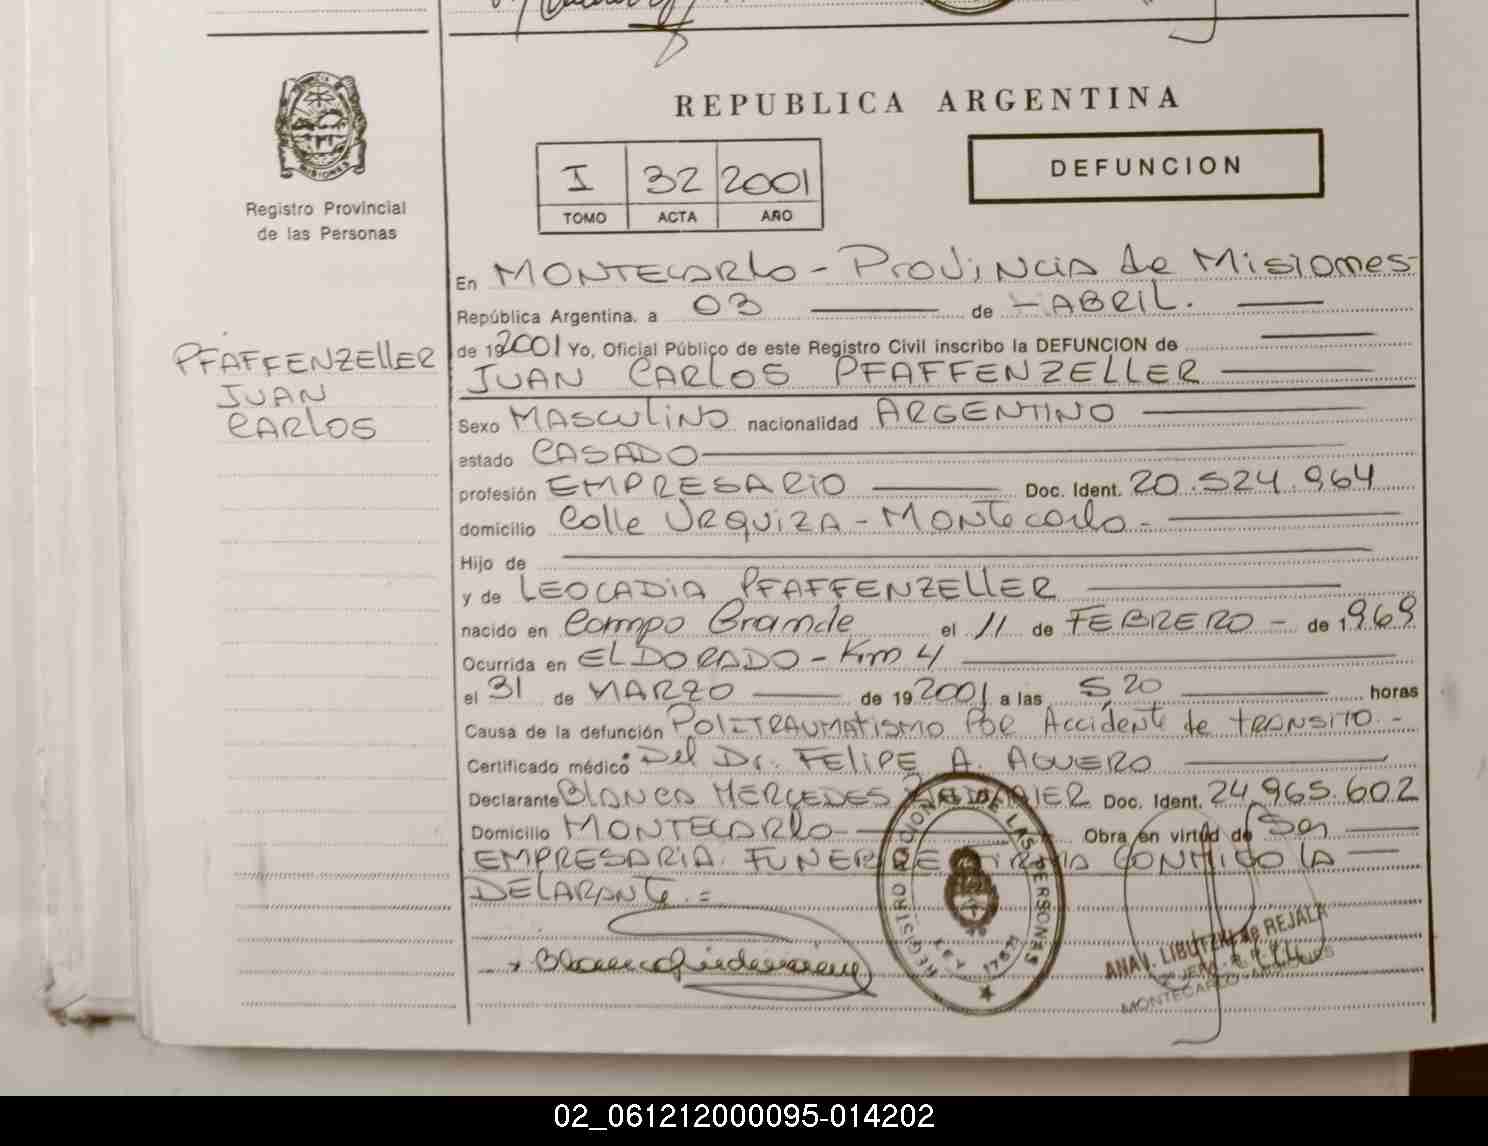 REPUBLICA ARGENTINA
I 32 2001
TOMO ACTA AÑO
DEFUNCION
MISIONES
Registro Provincial
de las Personas
PFAFFENZELLER
JUAN
CARLOS
En MONTECARLO - PROVINCIA de MISIONES
República Argentina, a 03 de ABRIL.
de 192001 Yo, Oficial Público de este Registro Civil inscribo la DEFUNCION de
JUAN CARLOS PFAFFENZELLER
Sexo MASCULINO nacionalidad ARGENTINO
estado CASADO
profesión EMPRESARIO Doc. Ident. 20.524.964
domicilio Calle URQUIZA - MONTECARLO -
Hijo de
y de LEOCADIA PFAFFENZELLER
nacido en Campo Grande el 11 de FEBRERO - de 1969
Ocurrida en ELDORADO - Km 4
el 31 de MARZO de 192001 a las 5,20 horas
Causa de la defunción POLITRAUMATISMO POR Accidente de TRANSITO. -
Certificado médico Del Dr. FELIPE A. AGUERO
Declarante BLANCA MERCEDES Doc. Ident. 24.965.602
Domicilio MONTECARLO Obra en virtud de Ser
EMPRESARIA FUNEBRE FIRMA CONMIGO LA
DELARANTE. =
REGISTRO NACIONAL DE LAS PERSONAS
LEY 17671
ANA V. LIBUTZKI de REJALA
MONTECARLO - MISIONES
02_061212000095-014202